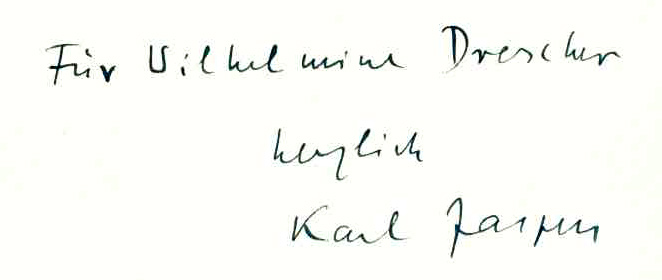 Für Wilhelmine Drescher
herzlich
Karl Jaspers